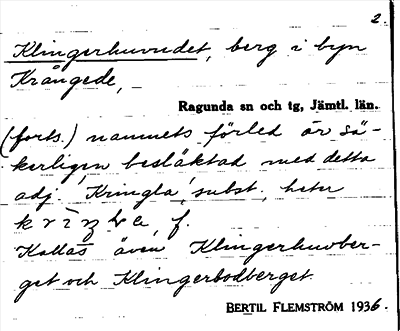 2.
Klingerhuvudet, berg i byn
Krångede,
Ragunda sn och tg, Jämtl. län.
(forts.) namnets förled är sä-
kerligen besläktad med detta
adj. Kringla, subst., heter
f.
Kallas även Klingerhuvber-
get och Klingerbodberget.
BERTIL FLEMSTRÖM 1936.